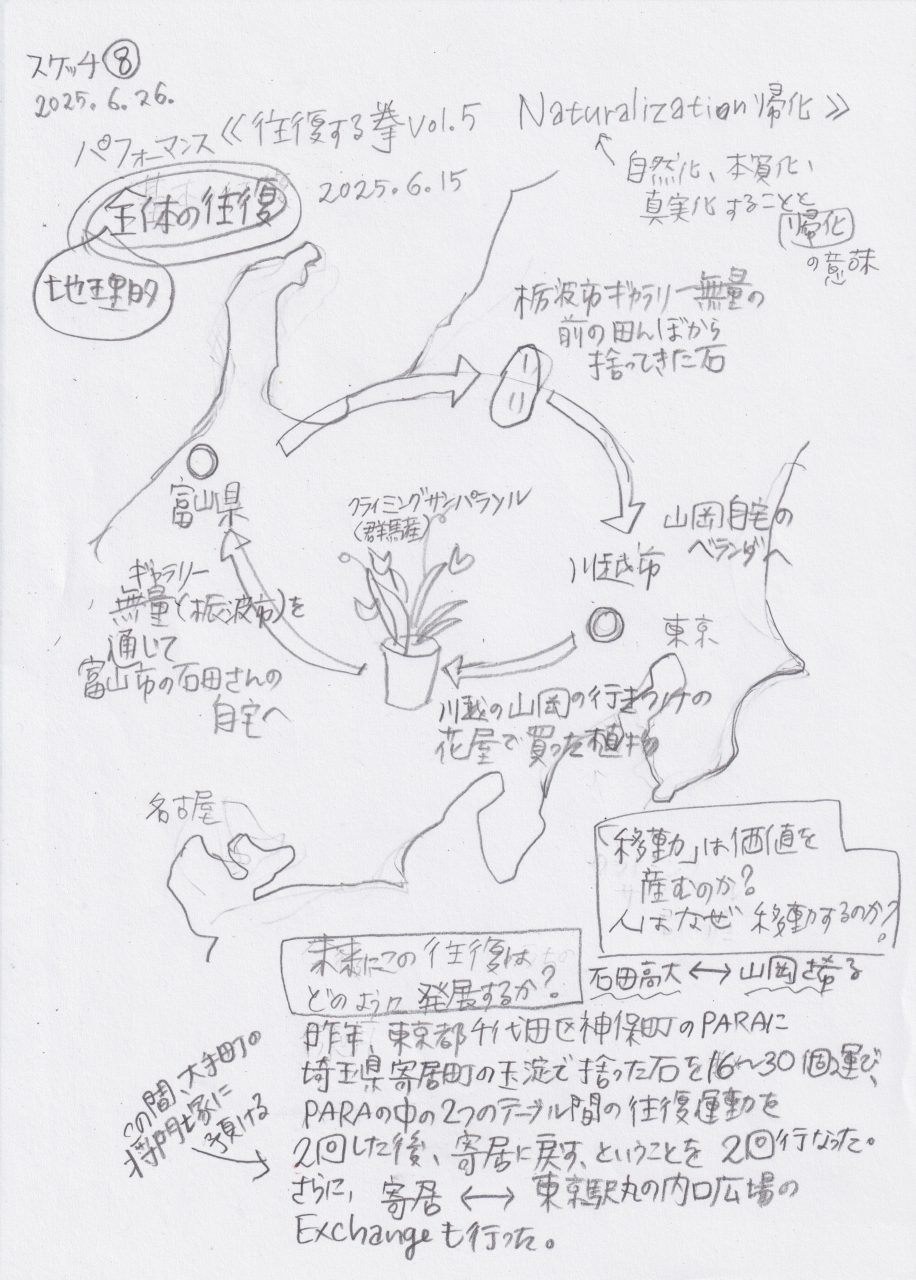 スケッチ⑧
2025.6.26.
パフォーマンス≪往復する拳 Vol.5 Naturalization 帰化≫
2025.6.15
自然化、本質化、
真実化することと
帰化
の意味
全体の往復
地理的
栃波市ギャラリー無量の
前の田んぼから
捨ってきた石
富山県
クライミングサンパラソル
(群馬産)
山岡自宅の
ベランダへ
川越市
東京
ギャラリー
無量(栃波市)を
通じて
富山市の石田さんの
自宅へ
川越の山岡の行きつけの
花屋で買った植物
名古屋
「移動」は価値を
産むのか?
人はなぜ移動するのか?
未来にこの往復は
どのように発展するか?
石田高大 ↔ 山岡さ希子
昨年、東京都千代田区神保町のPARAに
埼玉県寄居町の玉淀で捨った石を16〜30個運び、
PARAの中の2つのテーブル間の往復運動を
2回した後、寄居に戻す、ということを2回行なった。
さらに、寄居 ↔ 東京駅丸の内口広場の
Exchangeも行った。
この間、大手町の
将門塚に
預ける